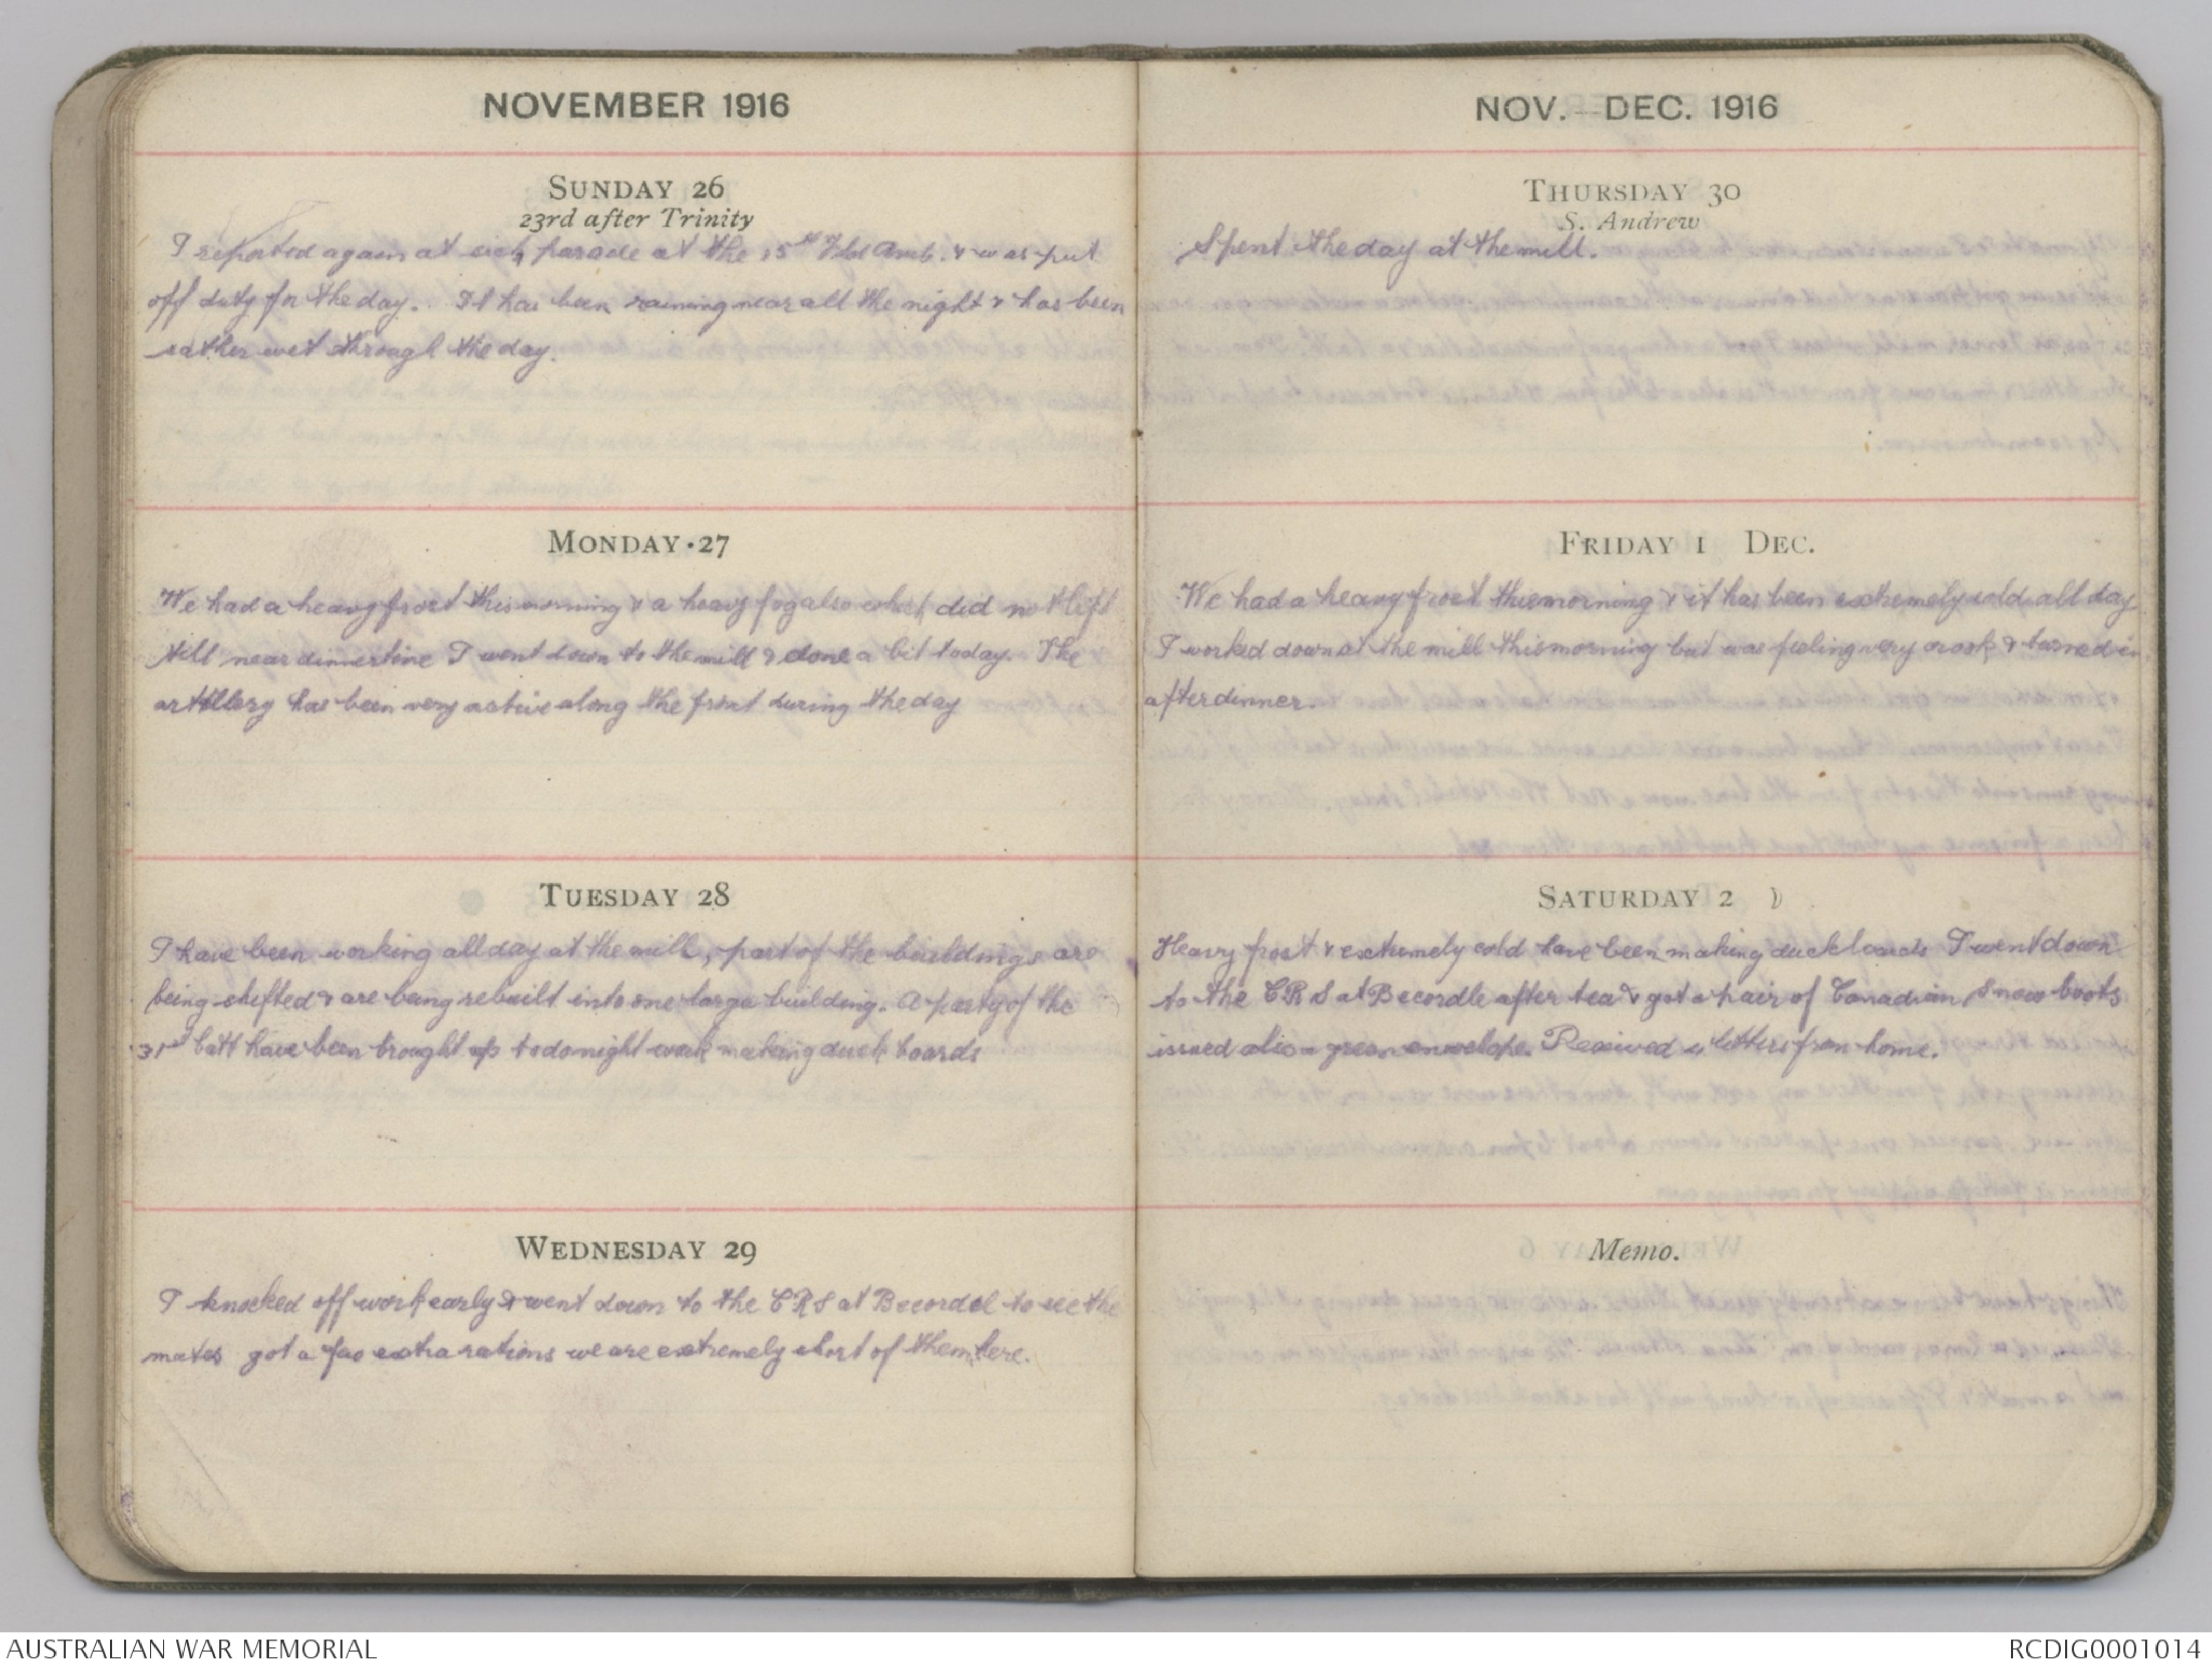 NOVEMBER 1916
SUNDAY 26
23rd after Trinity
I reported again at sick parade at the 15th Fld Amb. & was put
off duty for the day. It has been raining near all the night & has been
rather wet through the day.
MONDAY 27
We had a heavy frost this morning & a heavy fog also which did not lift
till near dinnertime I went down to the mill & done a bit today. The
artillery has been very active along the front during the day
TUESDAY 28
I have been working all day at the mill, part of the buildings are
being shifted & are being rebuilt into one large building. A party of the
31st batt have been brought up to do night work making duck boards
WEDNESDAY 29
I knocked off work early & went down to the CRS at Becordel to see the
mates got a few extra rations we are extremely short of them here.
NOV.—DEC. 1916
THURSDAY 30
S. Andrew
Spent the day at the mill.
FRIDAY 1 DEC.
We had a heavy frost this morning & it has been extremely cold all day
I worked down at the mill this morning but was feeling very crook & turned in
after dinner.
SATURDAY 2
Heavy frost & extremely cold have been making duckboards I went down
to the CRS at Becordle after tea & got a pair of Canadian Snow boots
issued also a green envelope. Received letters from home.
Memo.
AUSTRALIAN WAR MEMORIAL
RCDIG0001014